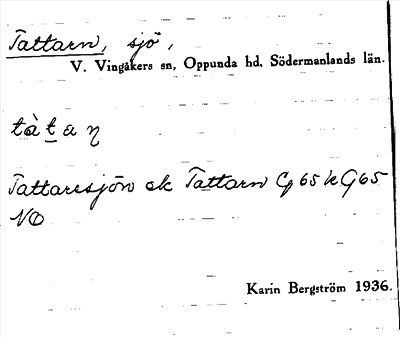 Tattarn, sjö,
V. Vingåkers sn, Oppunda hd. Södermanlands län.
tàtaŋ
Tattaresjön ek Tattarn G 65 k G 65
NO
Karin Bergström 1936.